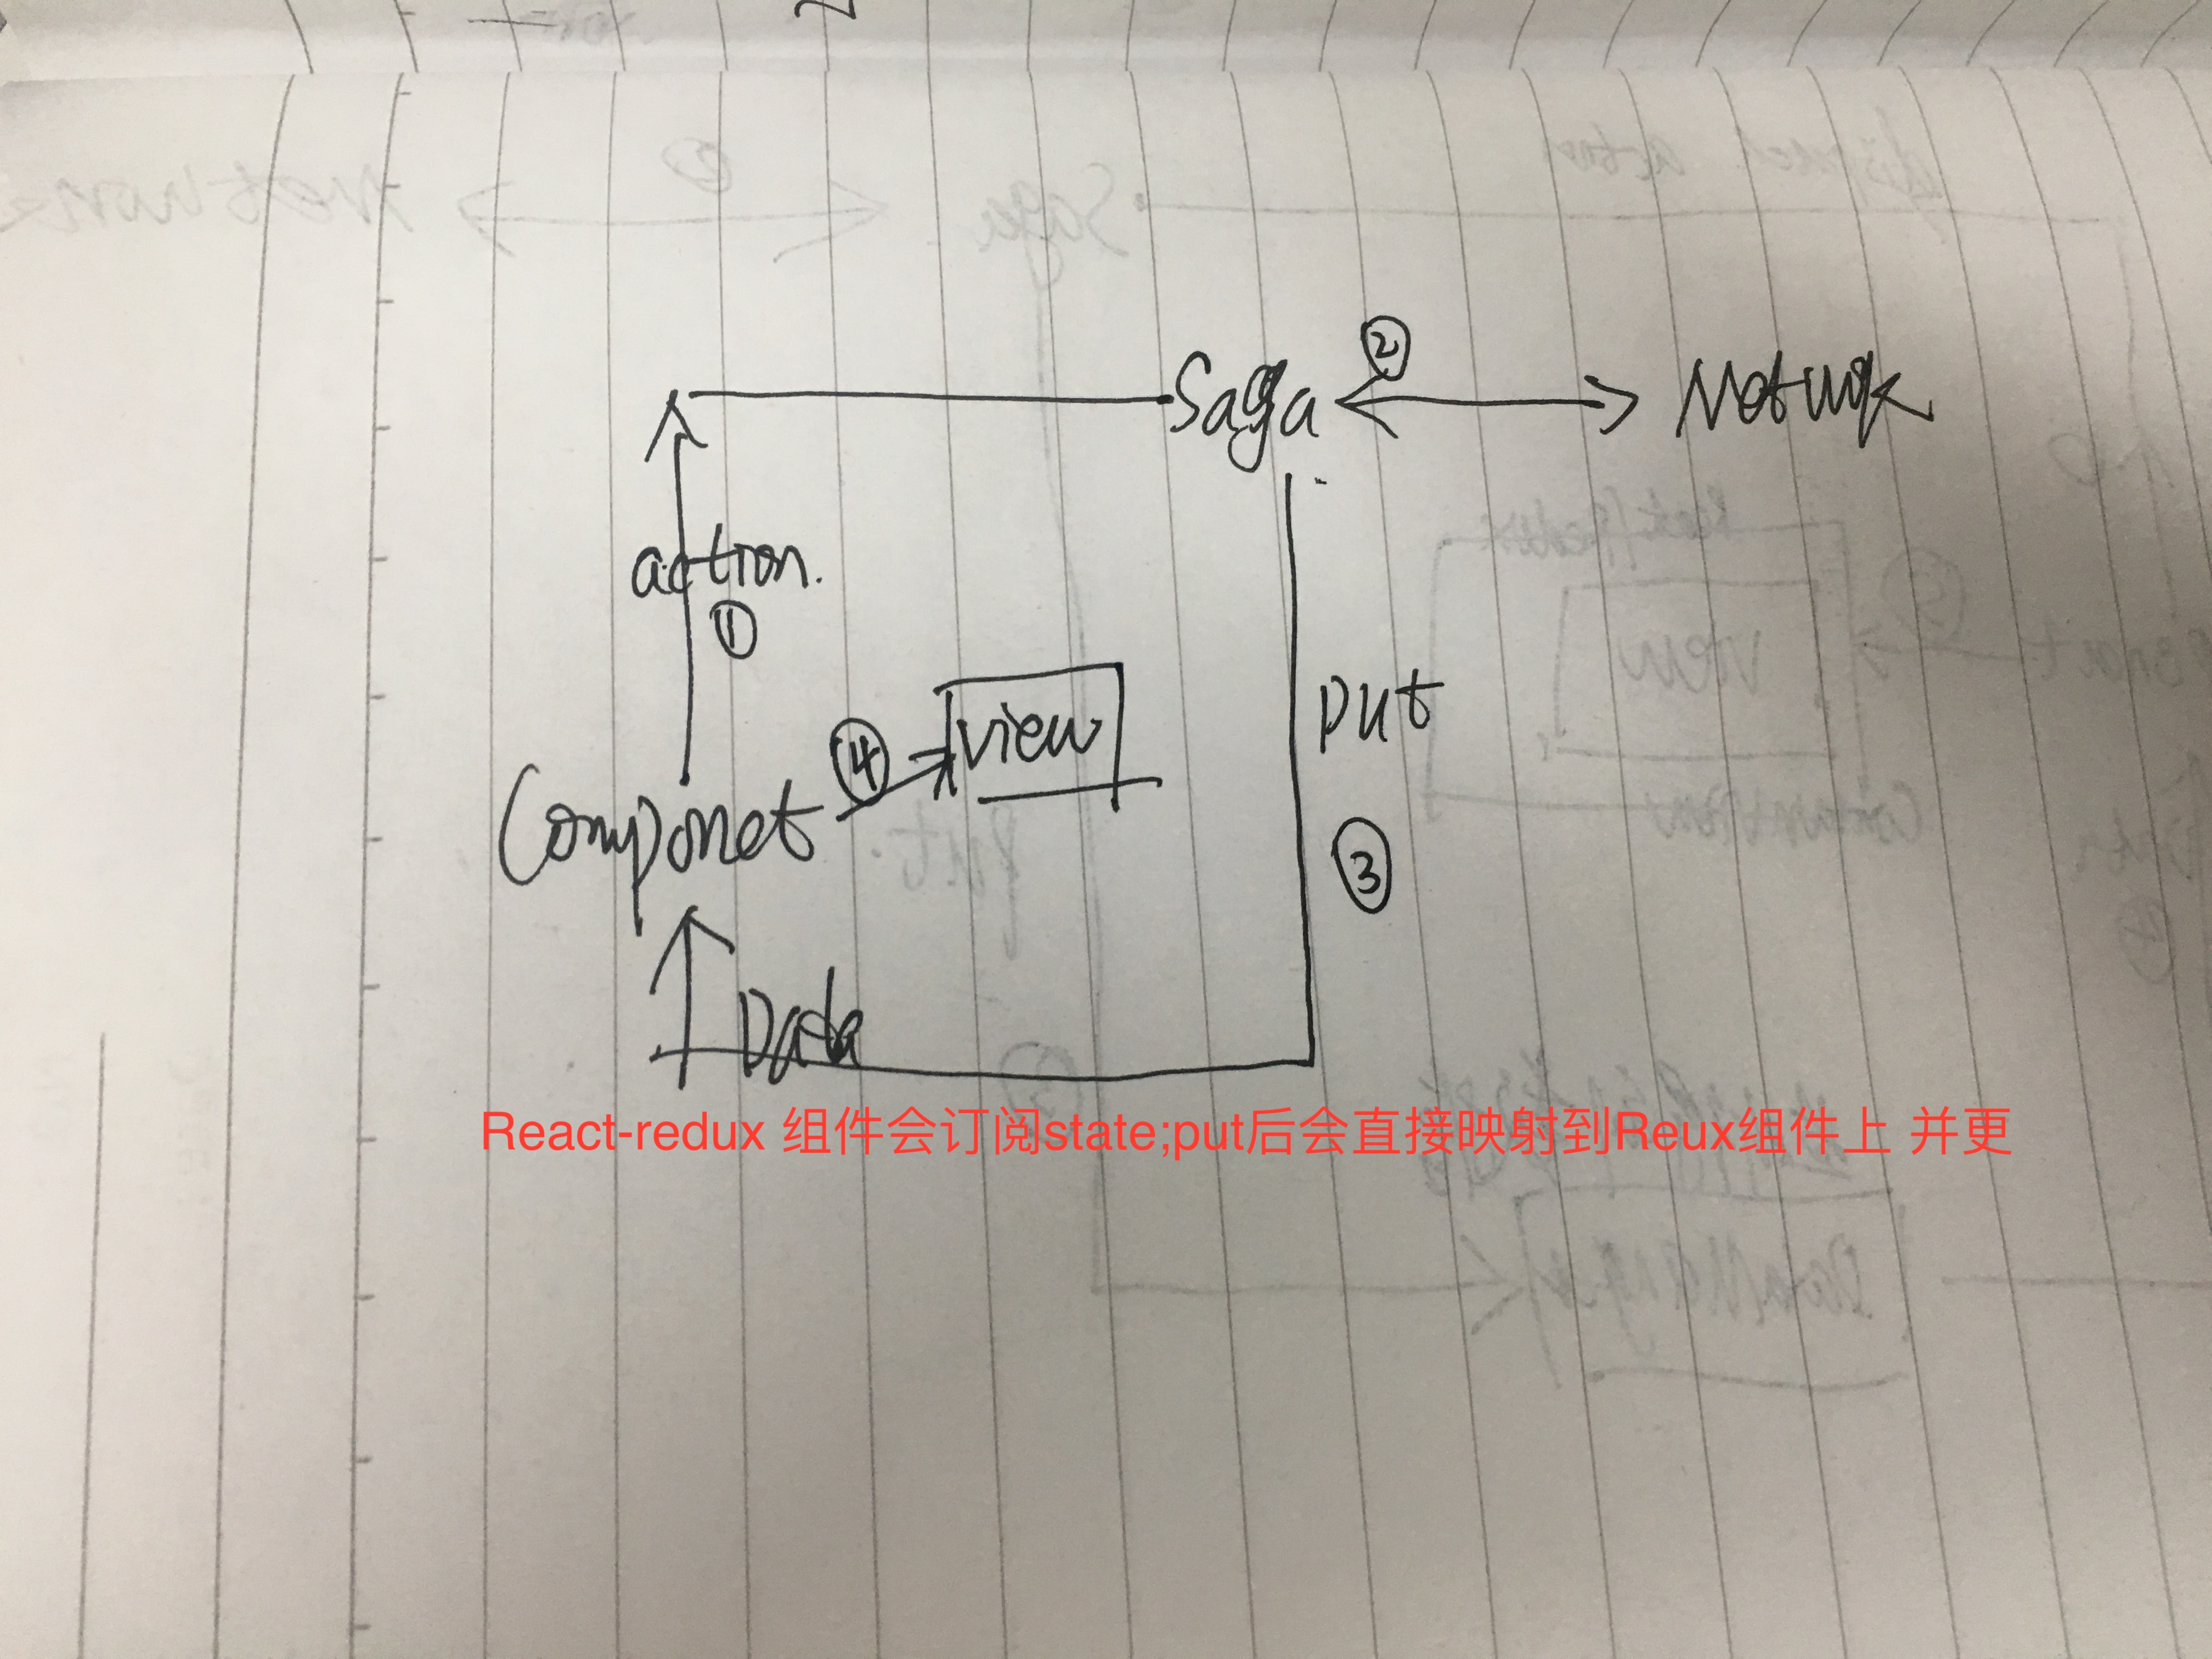 ②
Saga
Network
action.
①
put
④
view
Componet
③
Data
React-redux 组件会订阅state;put后会直接映射到Reux组件上 并更